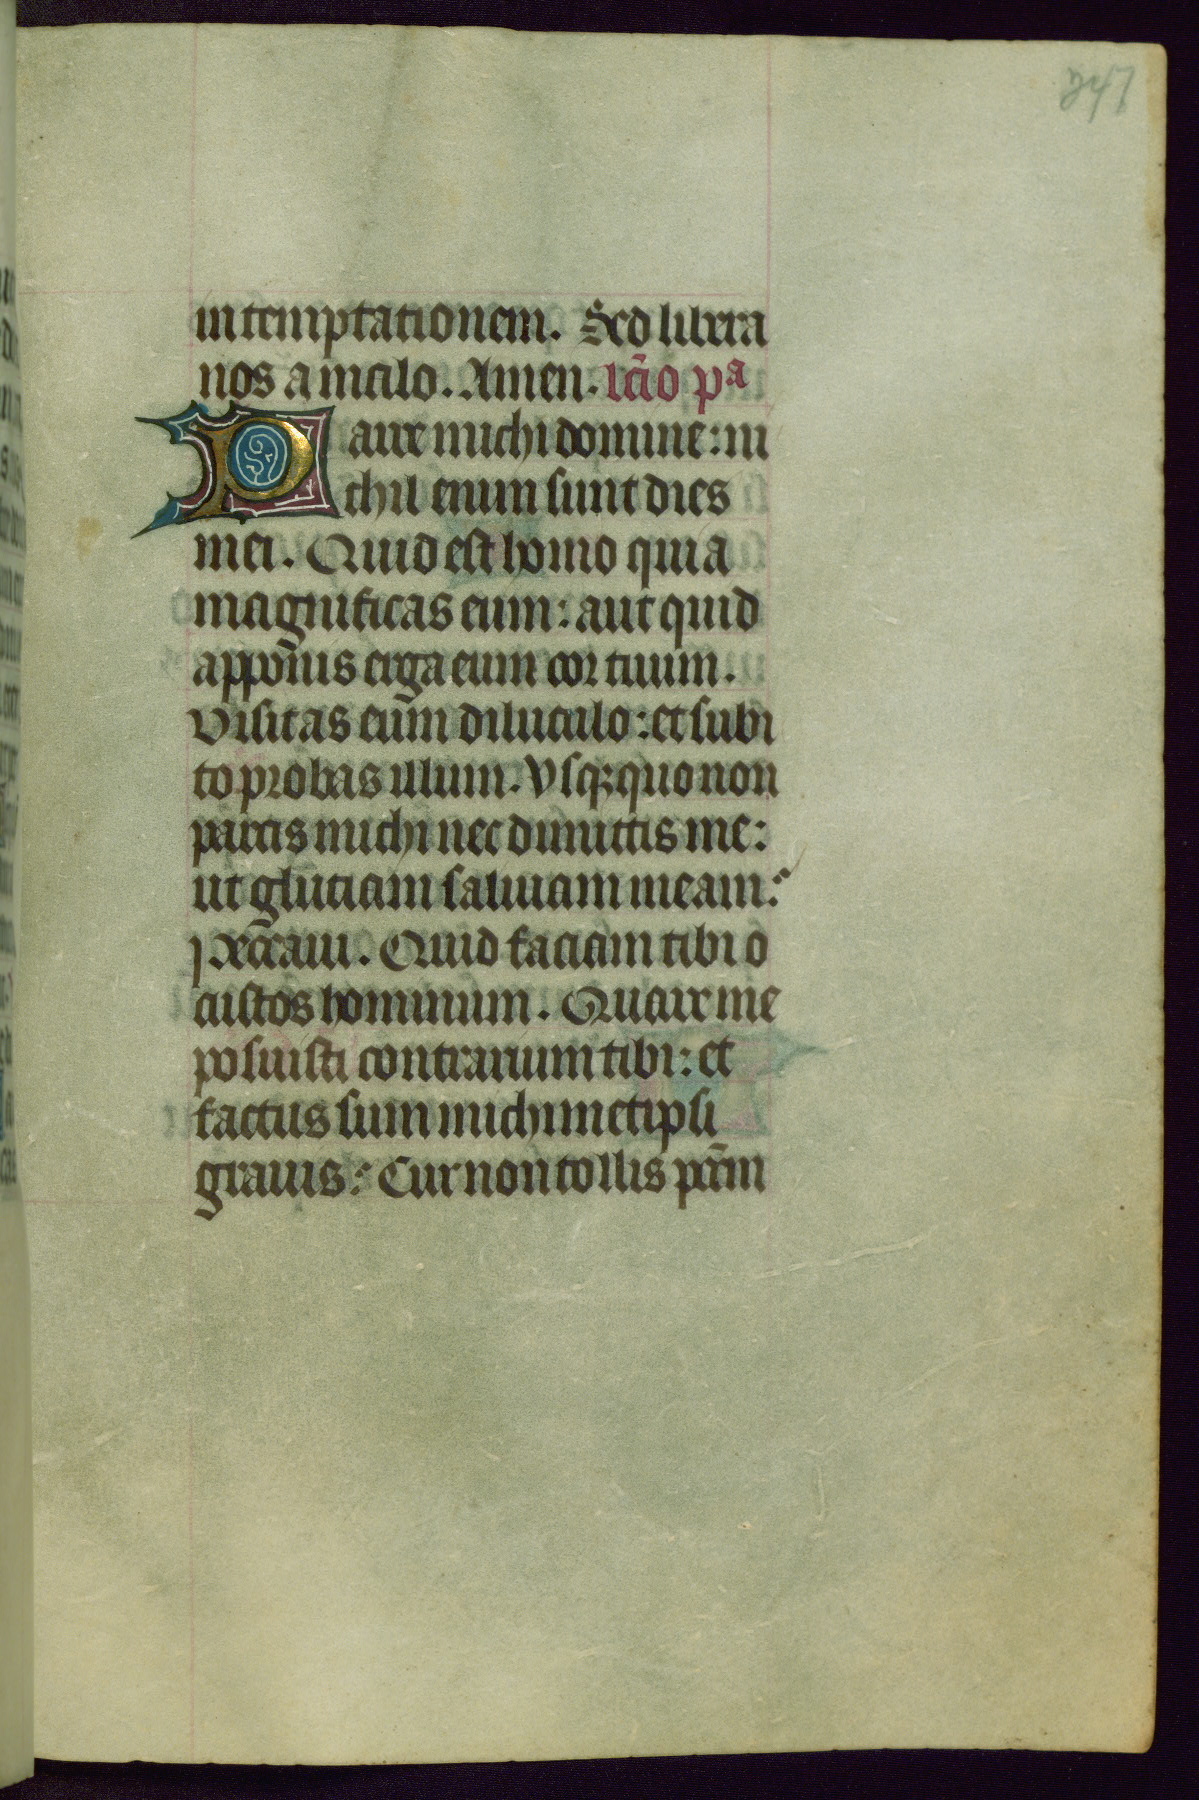 247
in temptationem. Sed libera
nos a malo. Amen. lc̄io pᵃ
Parce michi domine: ni
chil enim sunt dies
mei. Quid est homo quia
magnificas eum: aut quid
appōnis erga eum cor tuum.
Visitas eūm diluculo: et subi
to probas illum. Vsqꝫ quo non
parcis michi nec dimittis me:
ut glutiam saliuam meam:
Pecc̄aui. Quid faciam tibi o
custos hominum. Quare me
posuisti contrarium tibi: et
factus sum michimetipsi
grauis: Cur non tollis pcc̄m